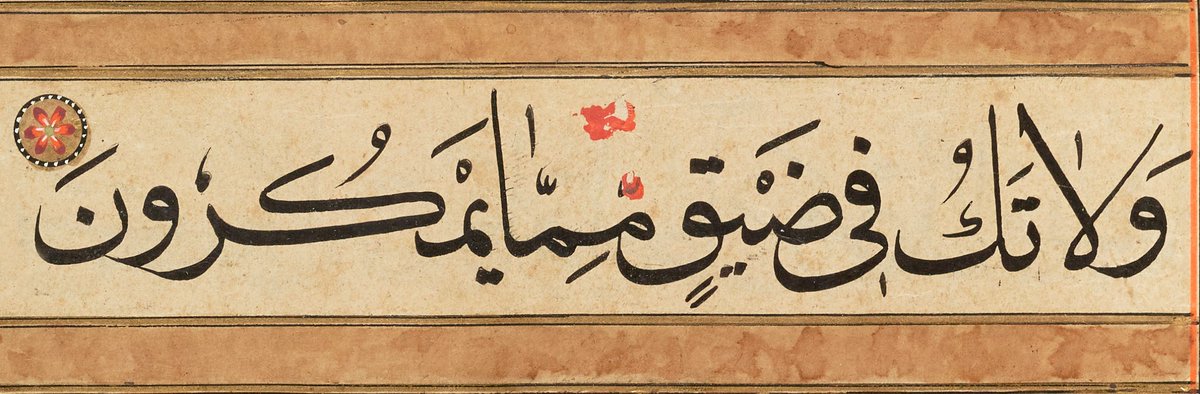 وَلَا تَكُ فِي ضَيْقٍ مِّمَّا يَمْكُرُونَ